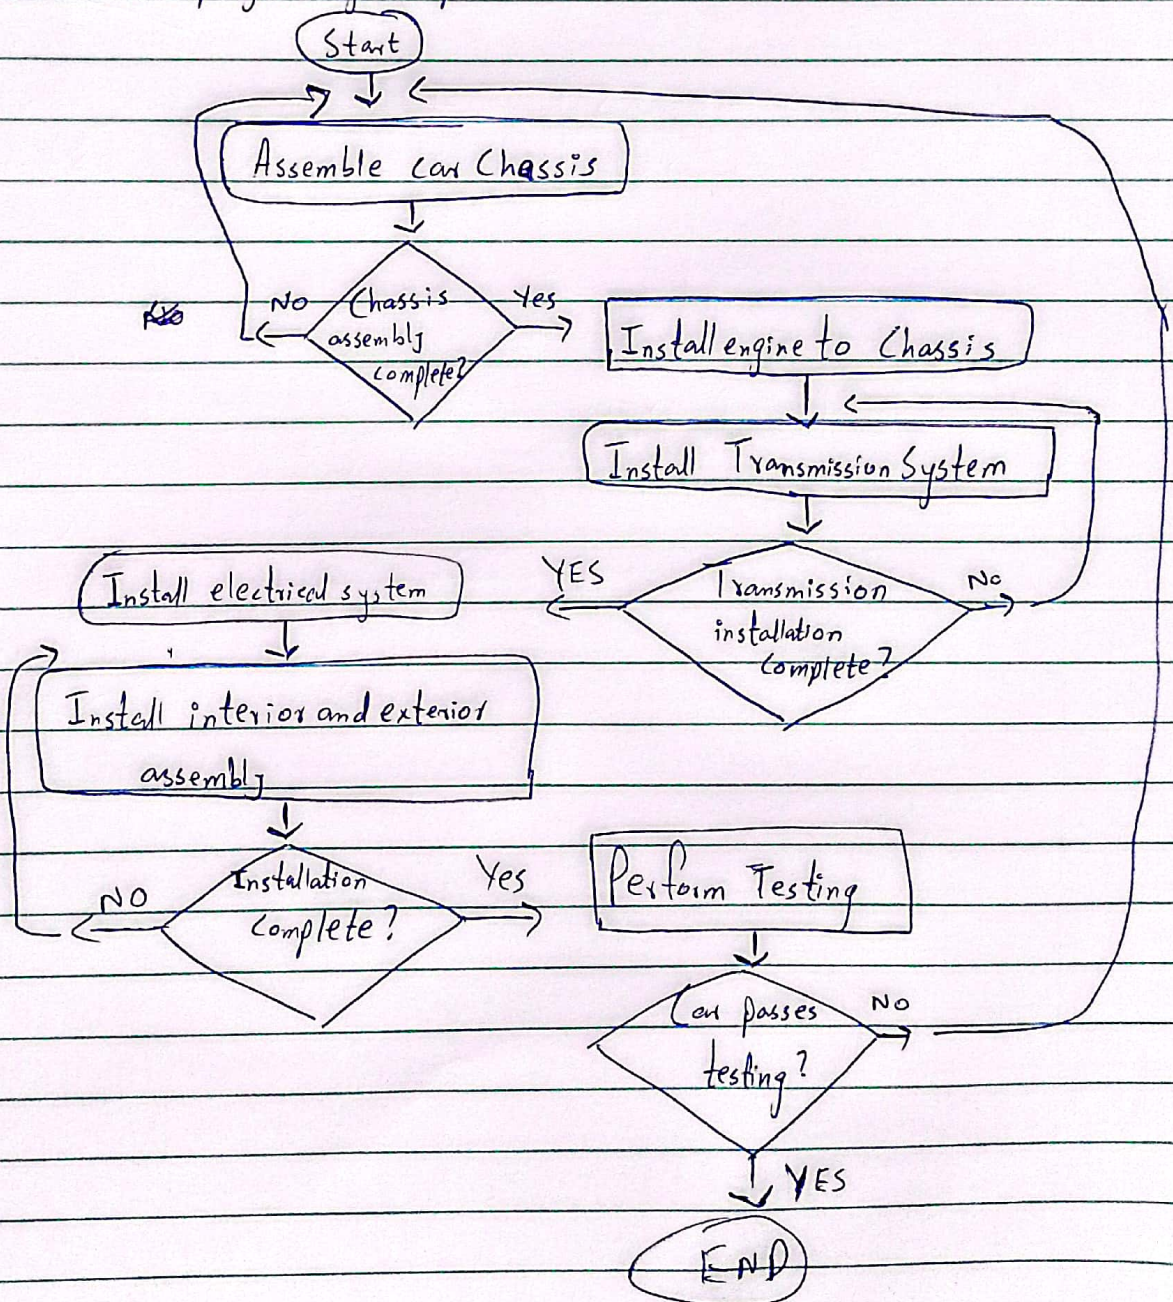 Start
Assemble car Chassis
Chassis
assembly
complete?
NO
Yes
Install engine to Chassis
Install Transmission System
Transmission
installation
complete?
No
YES
Install electrical system
Install interior and exterior
assembly
Installation
complete?
NO
Yes
Perform Testing
Car passes
testing?
NO
YES
END